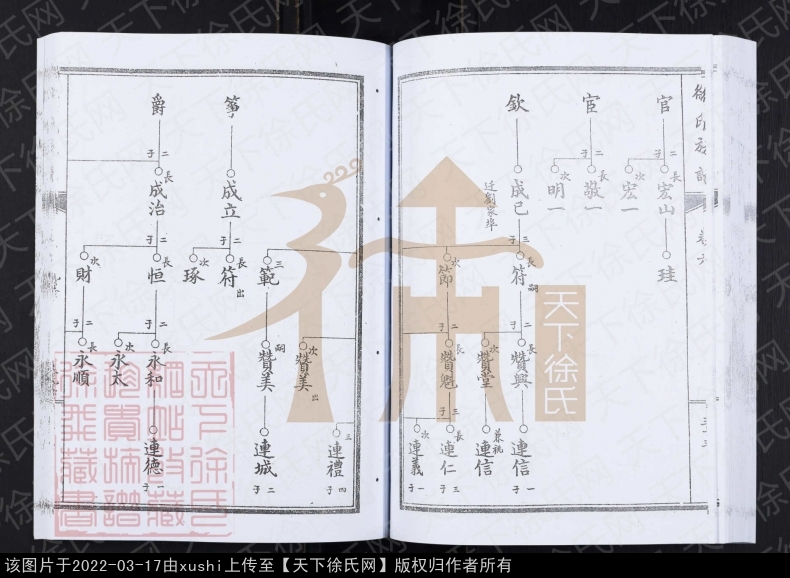 徐氏族譜
卷六
官
二子
長
宏山
珪
次
宏一
宦
二子
長
敬一
次
明一
欽
成已
迁劉家埠
三子
長
符
嗣
二子
長
贊興
連信
一子
次
贊堂
兼祧
連信
次
節
二子
長
贊魁
三子
長
連仁
三子
次
連義
一子
三
連禮
四子
次
贊美
出
三
範
嗣
贊美
連城
二子
箏
成立
二子
長
符
出
次
琢
爵
二子
長
成治
二子
長
恒
二子
長
永和
連德
一子
次
永太
次
財
二子
長
永順
天下徐氏
天下徐氏网
该图片于2022-03-17由xushi上传至【天下徐氏网】版权归作者所有